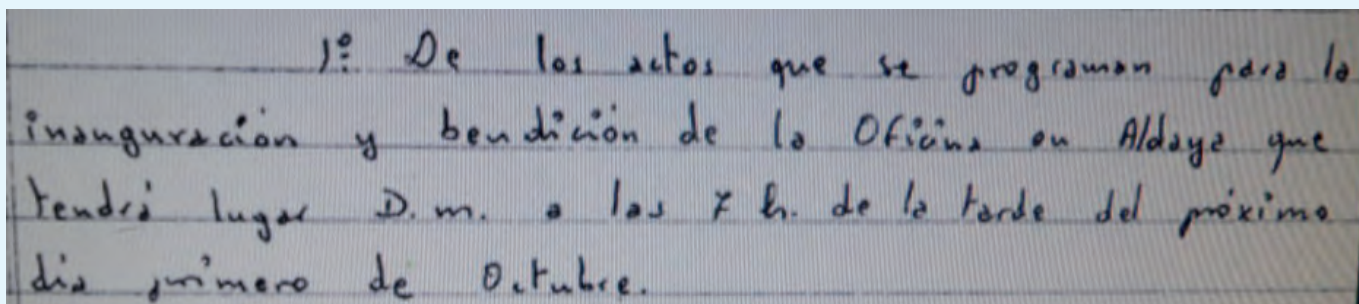 1º: De los actos que se programan para la
inauguración y bendición de la Oficina en Aldaya que
tendrá lugar D.m. a las 7 h. de la tarde del próximo
dia primero de Octubre.